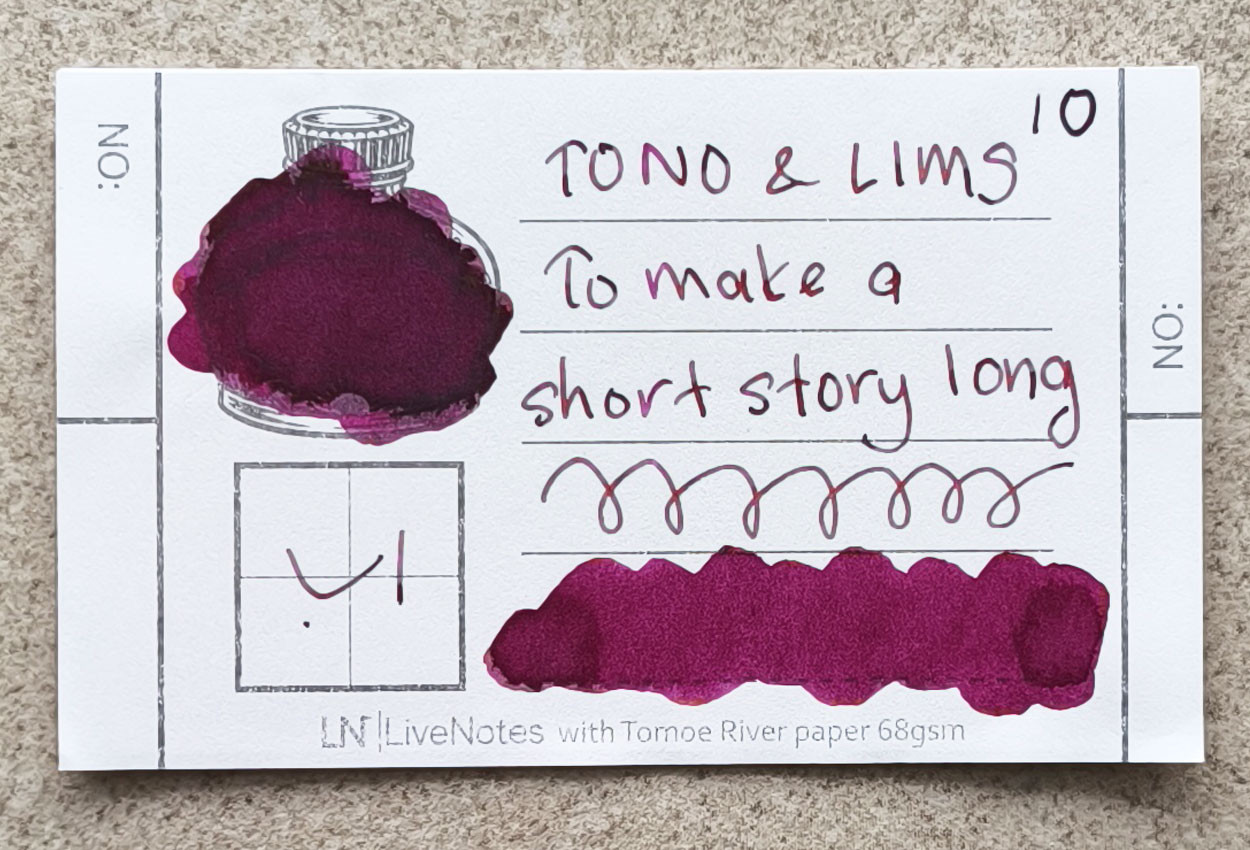 10
NO:
TONO & LIMS
To make a
short story long
NO:
اب
LN|LiveNotes with Tomoe River paper 68gsm